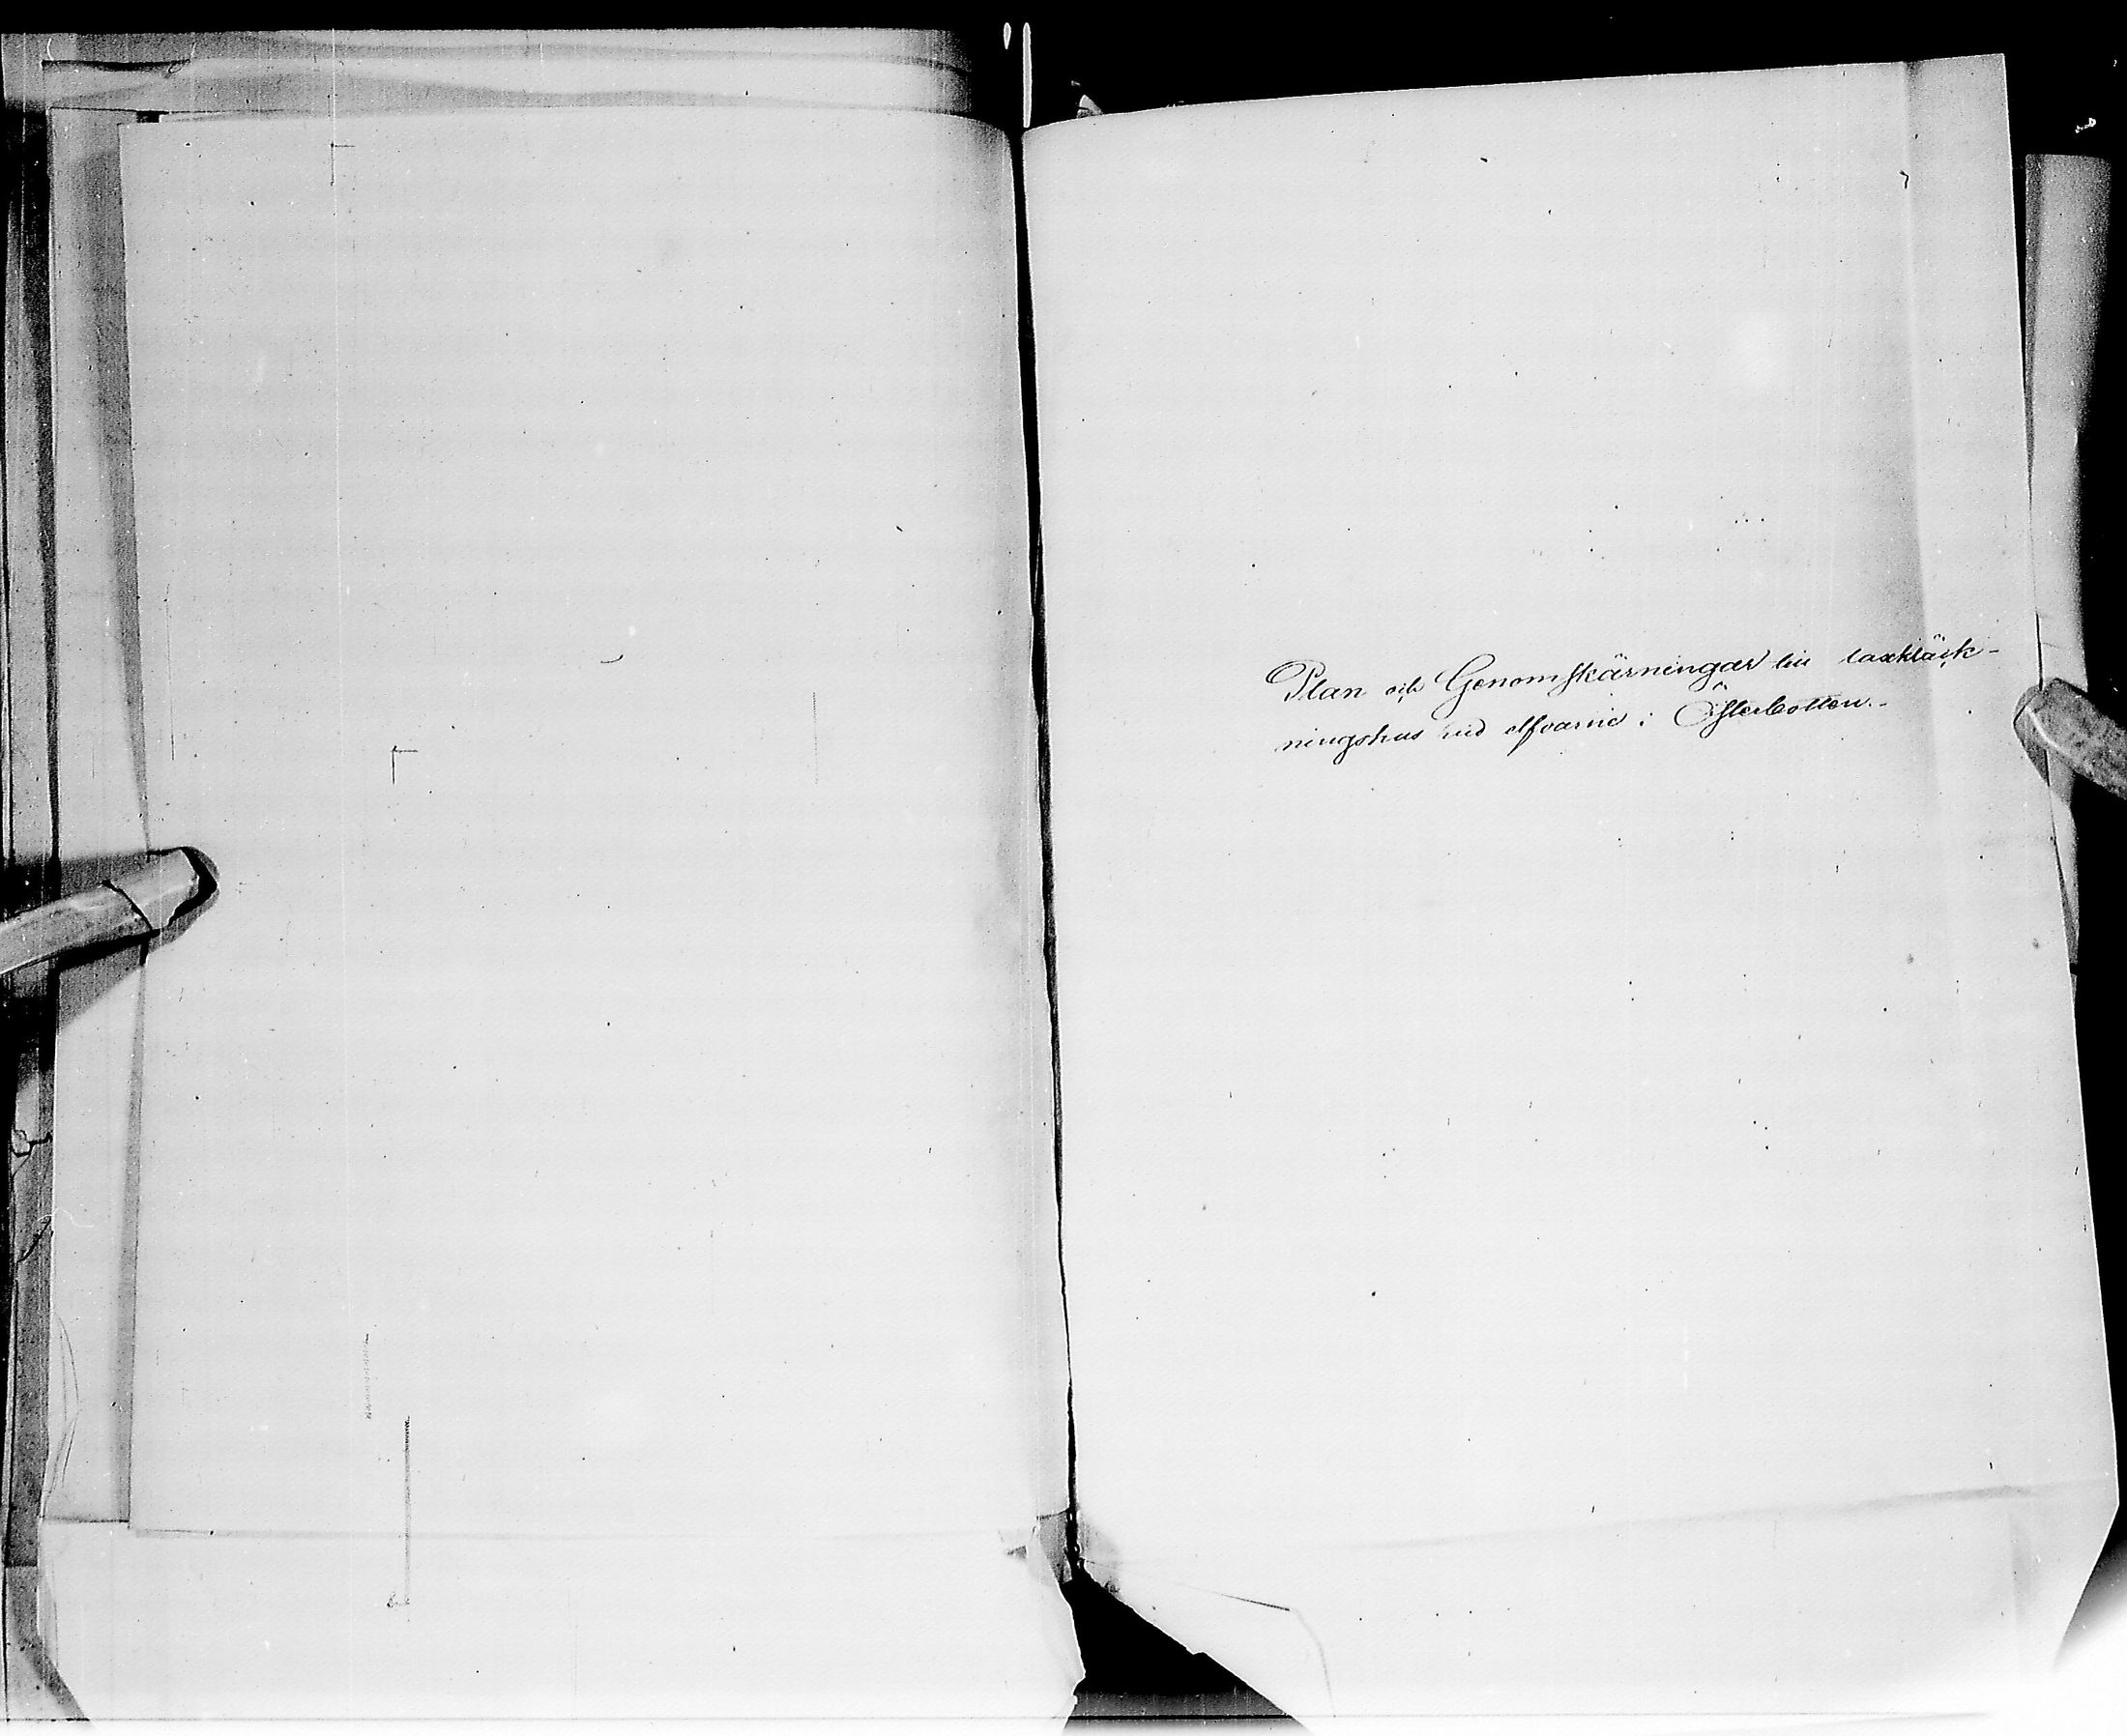 Plan och Genomskärningar till laxkläck-
ningshus vid elfvarne i Österbotten.-